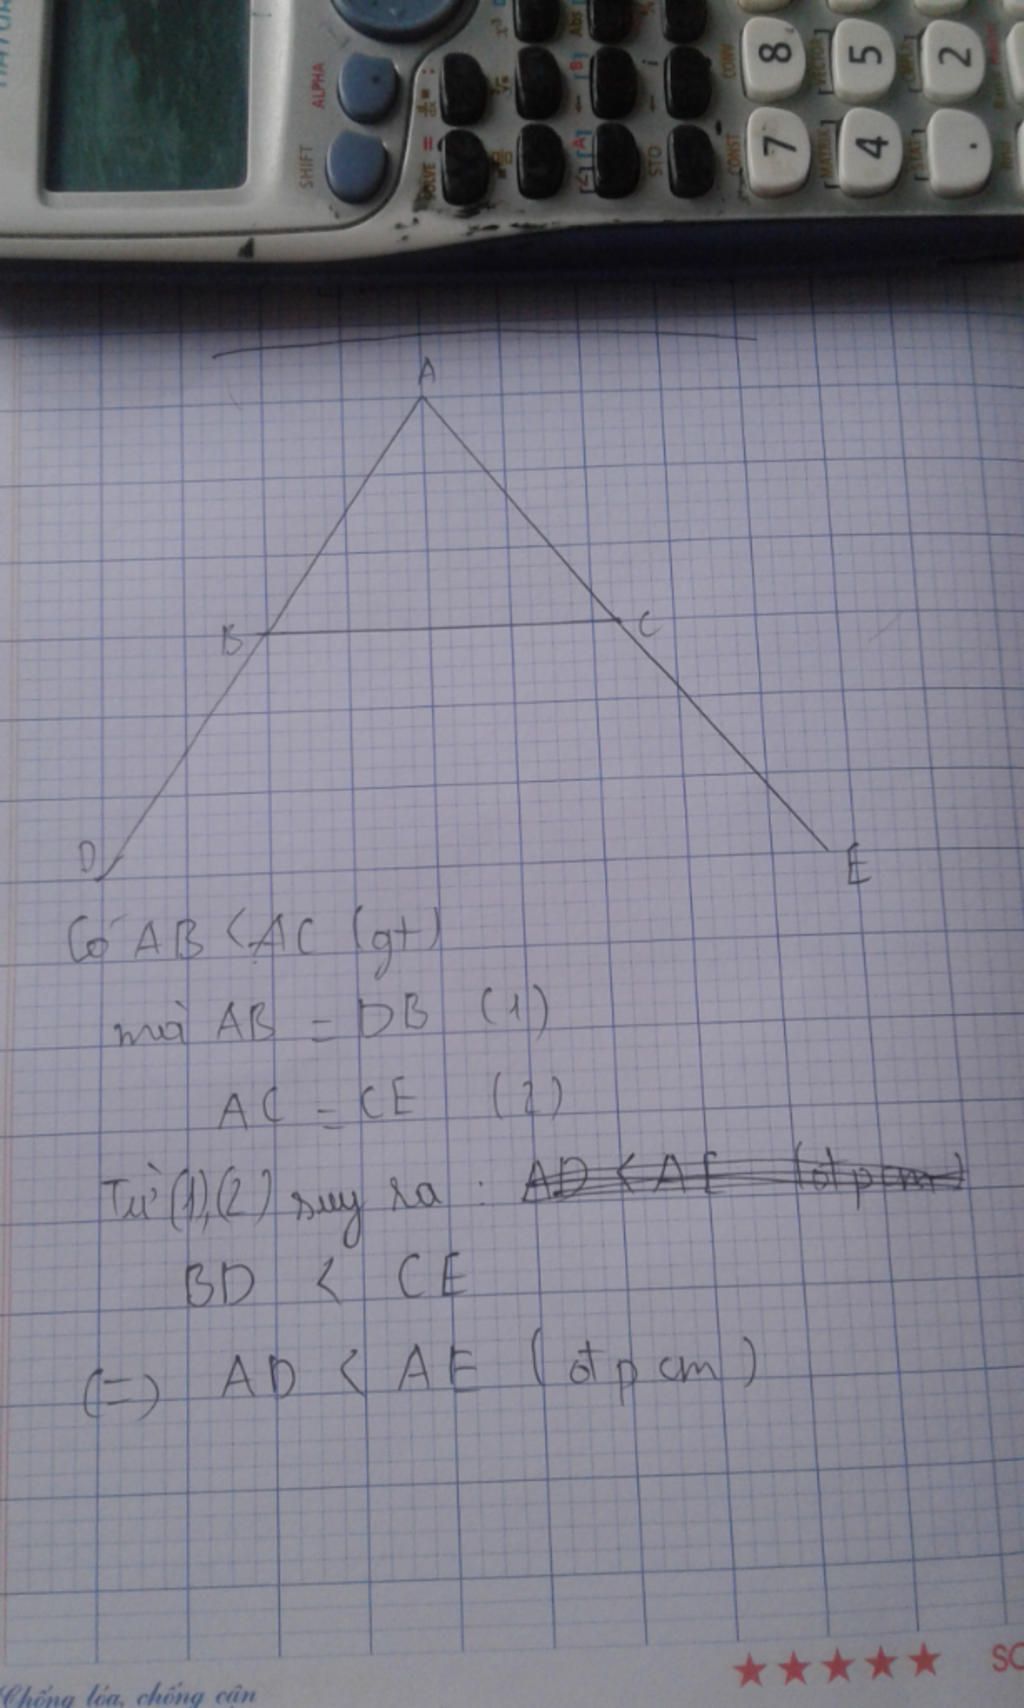 ALPHA
SHIFT
SOLVE =
STO
CONST
CONV
Abs
8 5 2
7 4 .
A
B C
D E
Có AB < AC (gt)
mà AB = DB (1)
AC = CE (2)
Từ (1),(2) suy ra : AD < AE (đtpcm)
BD < CE
(=) AD < AE (đtpcm)
★★★★★ SC
Chống lóa, chống cận